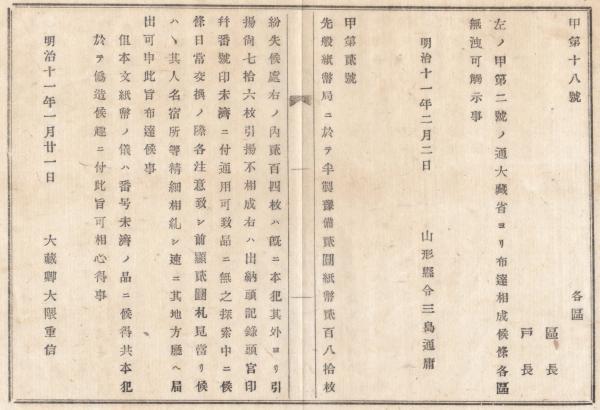 甲第十八號
各區
區長
戸長
左ノ甲第二號ノ通大藏省ヨリ布達相成候條各區
無洩可觸示事
明治十一年二月二日
山形縣令三島通庸
甲第貳號
先般紙幣局ニ於テ半製豫備貳圓紙幣貳百八拾枚
紛失候處右ノ内貳百四枚ハ旣ニ本犯其外ヨリ引
揚尙七拾六枚引揚不相成右ハ出納頭記錄頭官印
幷番號印未濟ニ付通用可致品ニ無之探索中ニ候
條日常交換ノ際各注意致シ前顯貳圓札見當リ候
ハヽ其人名宿所等精細相糺シ速ニ其地方廳ヘ屆
出可申此旨布達候事
但本文紙幣ノ儀ハ番号未濟ノ品ニ候得共本犯
於テ僞造候趣ニ付此旨可相心得事
明治十一年一月廿一日
大藏卿大隈重信